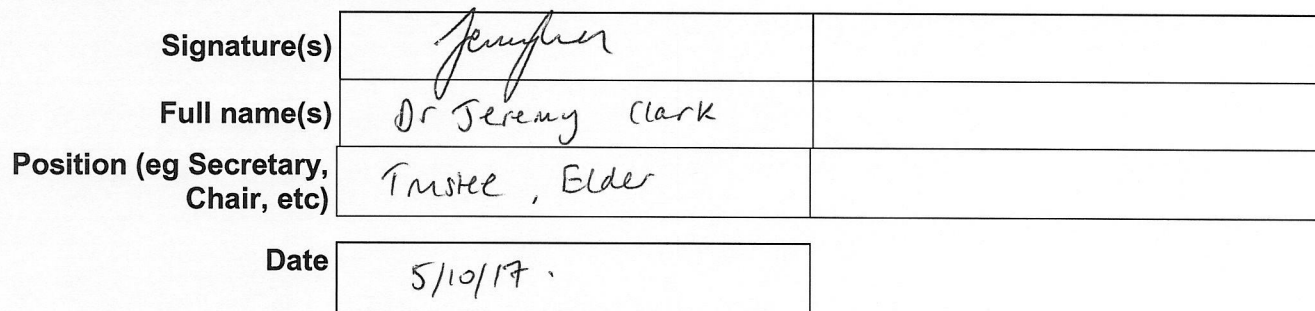 Signature(s)
Full name(s) Dr Jeremy Clark
Position (eg Secretary, Trustee, Elder
Chair, etc)
Date 5/10/17.